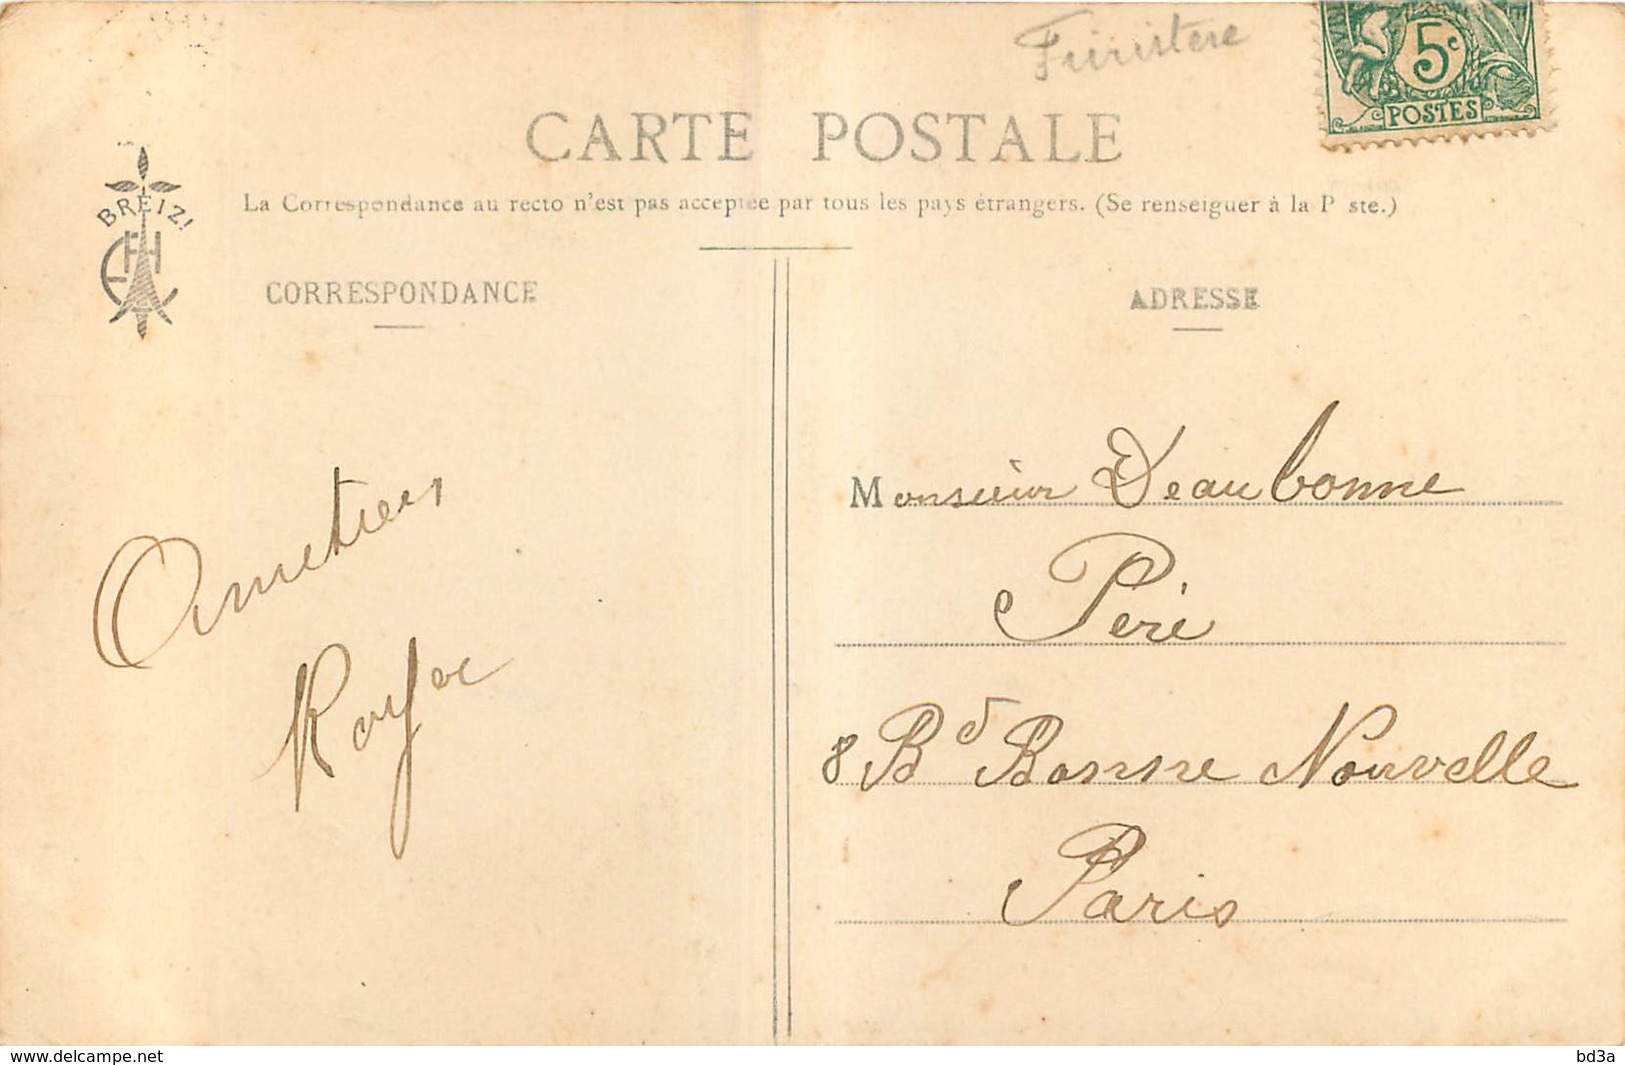 Finistere
5c
POSTES
CARTE POSTALE
BREIZ!
La Correspondance au recto n'est pas acceptée par tous les pays étrangers. (Se renseigner à la P ste.)
CORRESPONDANCE
ADRESSE
Amitiés
Royer
Monsieur Deaubonne
Péré
8 Bd Bonne Nouvelle
Paris
www.delcampe.net
bd3a